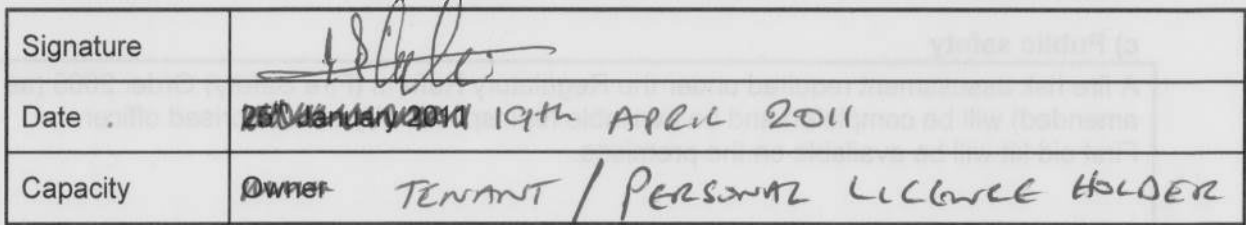 Signature
Date . 25th January 2011 19th APRIL 2011
Capacity Owner TENANT / PERSONAL LICENCE HOLDER